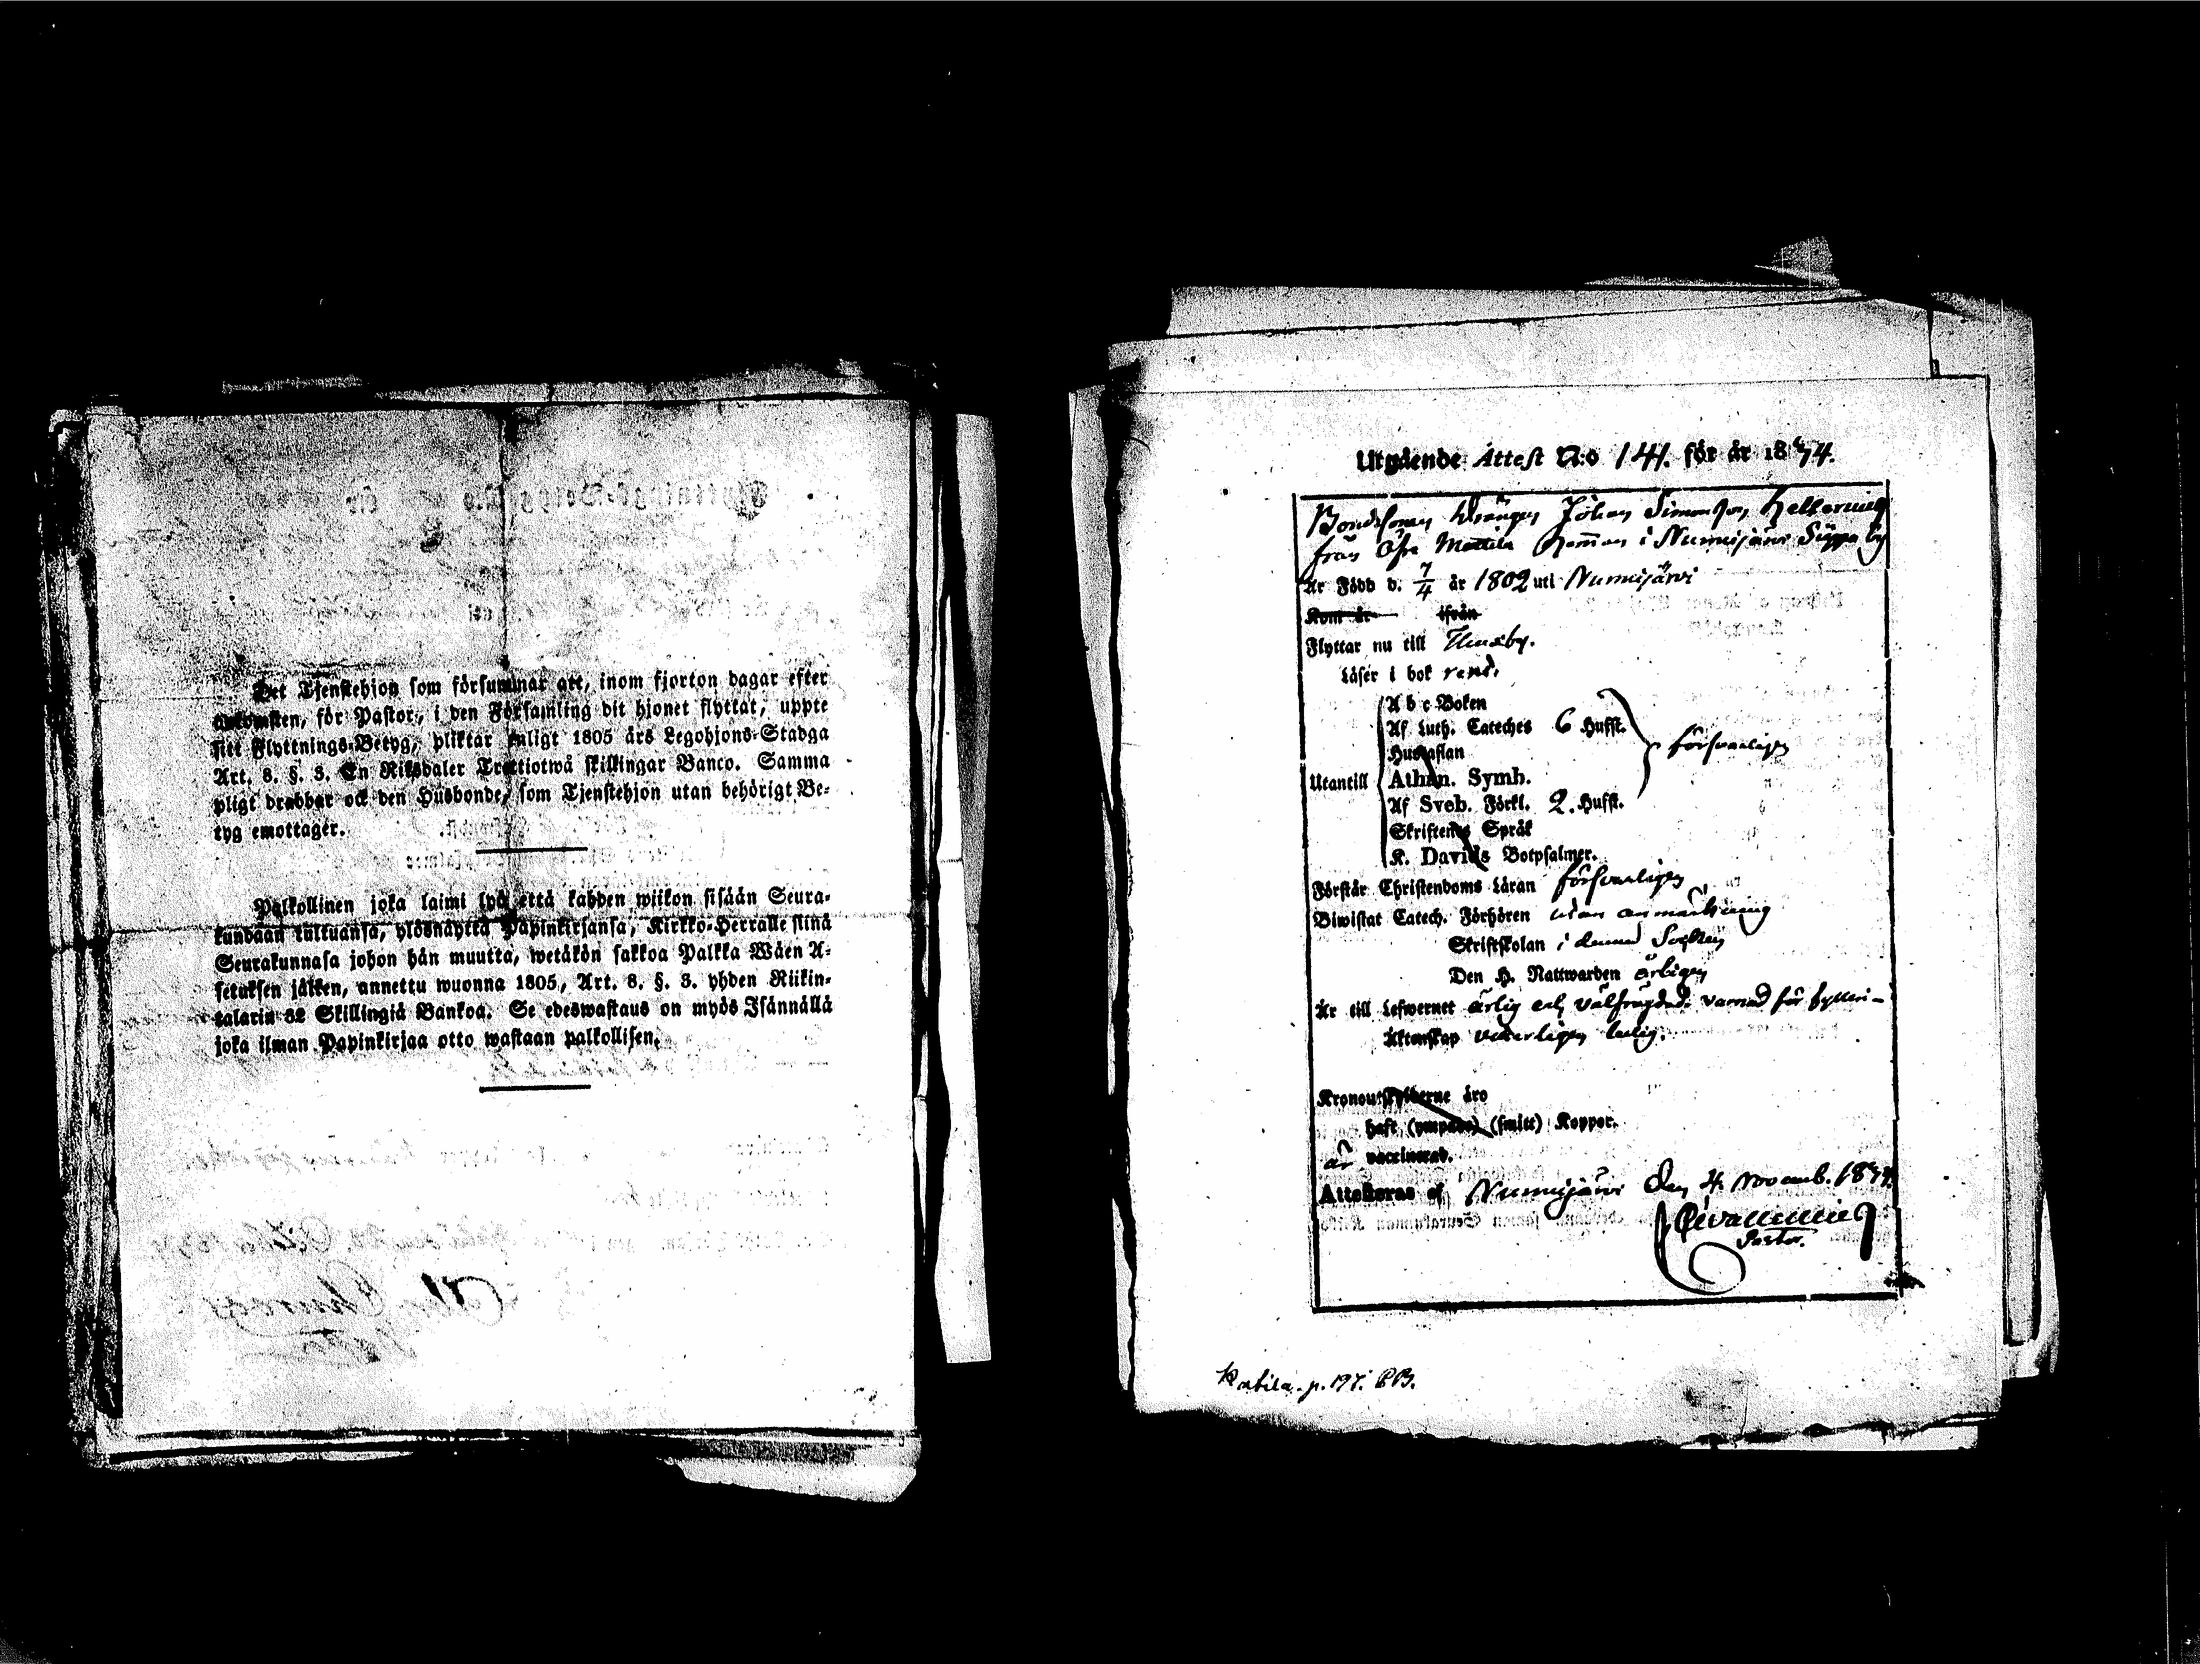 Det Tjenstehjon som försummar att, inom fjorton dagar efter
ankomsten, för Pastor, i den Församling dit hjonet flyttat, uppte
sitt Flyttnings-Betyg, pliktar enligt 1805 års Legohjons-Stadga
Art. 8. §. 3. En Riksdaler Trettiotwå skillingar Banco. Samma
pligt drabbar ock den Husbonde, som Tjenstehjon utan behörigt Be-
tyg emottager.
Palkollinen joka laimi lyö että kahden wiikon sisään Seura-
kundaan tultuansa, ylösnäyttä Papinkirjansa, Kirkko-Herralle siinä
Seurakunnasa johon hän muutta, wetäkön sakkoa Palkka Wäen A-
setuksen jälken, annettu wuonna 1805, Art. 8. §. 3. yhden Riikin-
talarin 32 Skillingiä Bankoa. Se edeswastaus on myös Isännällä
joka ilman Papinkirjaa otto wastaan palkollisen.
Utgående Attest N:o 141. för år 1834.
Bondesonen Drängen Johan Simonsson
från Öfre Mattila hemman i Nurmijärvi by
Är Född d. 7/4 år 1802 uti Nurmijärvi
Kom år ifrån
Flyttar nu till Thusby.
Läser i bok rent.
A b c Boken
Af Luth. Cateches 6 Hufst.
Hustaflan
försvarligen
Utantill Athan. Symb.
Af Sveb. Förkl. 2. Hufst.
Skriftenes Språk
K. Davids Botpsalmer.
Förstår Christendoms Läran försvarligen
Biwistat Catech. Förhören utan anmärkning
Skriftskolan i denna Socken
Den H. Nattwarden årligen
Är till Lefwernet ärlig och välfrägdad. varnad för fylleri-
Äktenskap vederligen ledig.
Kronoutskylderne äro
haft (ympade) (smitt) Koppor.
är vaccinerad.
Attesteras af Nurmijärvi den 4. Novemb. 1834.
Pastor.
p. 197. BB.